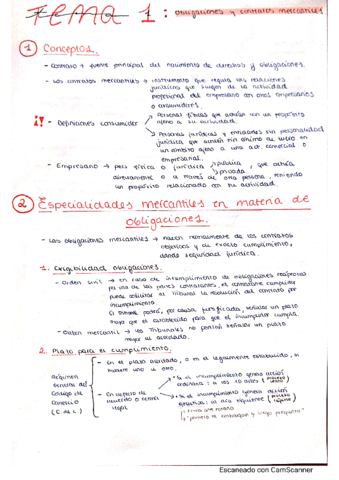 TEMA 1: obligaciones y contratos mercantiles
1 Conceptos.
- contrato → fuente principal del nacimiento de derechos y obligaciones.
- Los contratos mercantiles → instrumento que regula las relaciones
jurídicas que surgen de la actividad
profesional del empresario con otros empresarios
o consumidores.
- Definiciones consumidor
→ Personas físicas que actúan con un propósito
ajeno a su actividad.
→ Personas jurídicas y entidades sin personalidad
jurídica que actúen sin ánimo de lucro en
un ámbito ajeno a una act. comercial o
empresarial.
- Empresario → pers física o jurídica pública, que actúa
privada
directamente o a través de otra persona, teniendo
un propósito relacionado con su actividad.
2 Especialidades mercantiles en materia de
obligaciones.
- Las obligaciones mercantiles → nacen normalmente de los contratos
objetivos y de exacto cumplimiento,
dando seguridad jurídica.
1. Exigibilidad obligaciones.
- Orden civil → en caso de incumplimiento de obligaciones recíprocas
por una de las partes contratantes, el contratante cumplidor
puede solicitar al Tribunal la resolución del contrato por
incumplimiento.
El Tribunal podrá, por causa justificada, señalar un plazo
para que el contratado para que el incumplidor cumpla.
- Orden mercantil → los Tribunales no podrán señalar un plazo
mayor al acordado.
2. Plazo para el cumplimiento.
Régimen
General del
Código de
Comercio
(C. de C.)
- En el plazo acordado, o en el legalmente establecido, si
hubiere uno u otro.
- En defecto de
acuerdo o norma
legal
* Si el incumplimiento genera acción
ordinaria: a los 10 días
* Si el incumplimiento genera acción
ejecutiva: al día siguiente
"primero te embargan y luego preguntan"
Escaneado con CamScanner